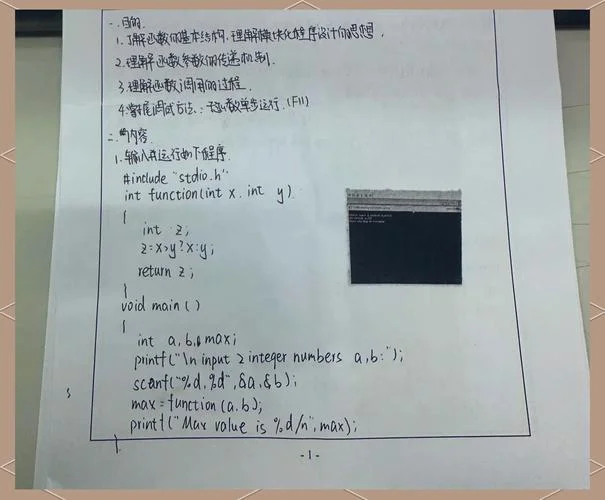 一.目的.
1.了解函数的基本结构,理解模块化程序设计的思想.
2.理解函数参数的传递机制.
3.理解函数调用的过程.
4.掌握调试方法:函数单步运行.(F11)
二.内容.
1.输入并运行如下程序.
#include "stdio.h"
int function(int x, int y)
{
int z;
z=x>y?x:y;
return z;
}
void main()
{
int a,b,max;
printf("\n input 2 integer numbers a,b:");
scanf("%d,%d",&a,&b);
max=function(a,b);
printf("Max value is %d/n",max);
}
-1-